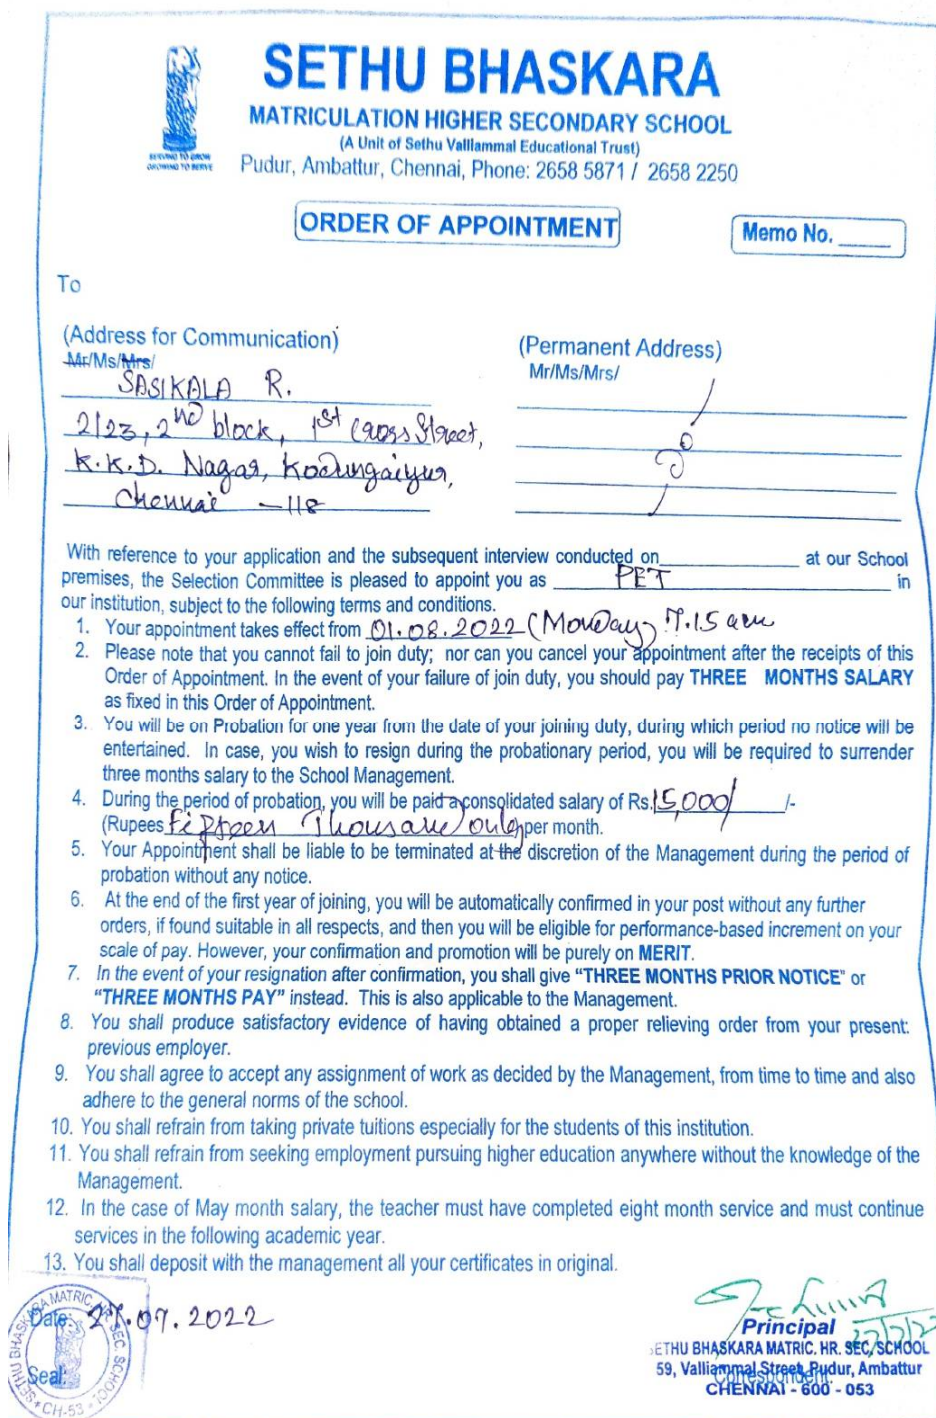 SETHU BHASKARA
MATRICULATION HIGHER SECONDARY SCHOOL
(A Unit of Sethu Valliammal Educational Trust)
SERVING TO GROW
GROWING TO SERVE
Pudur, Ambattur, Chennai, Phone: 2658 5871 / 2658 2250
ORDER OF APPOINTMENT
Memo No. ______
To
(Address for Communication)
Mr/Ms/Mrs/
SASIKALA R.
2/23, 2nd block, 1st Cross Street,
K.K.D. Nagar, Kodungaiyur,
Chennai -118
(Permanent Address)
Mr/Ms/Mrs/
With reference to your application and the subsequent interview conducted on______________ at our School
premises, the Selection Committee is pleased to appoint you as PET in
our institution, subject to the following terms and conditions.
1. Your appointment takes effect from 01.08.2022 (Monday) 7.15 am
2. Please note that you cannot fail to join duty; nor can you cancel your appointment after the receipts of this
Order of Appointment. In the event of your failure of join duty, you should pay THREE MONTHS SALARY
as fixed in this Order of Appointment.
3. You will be on Probation for one year from the date of your joining duty, during which period no notice will be
entertained. In case, you wish to resign during the probationary period, you will be required to surrender
three months salary to the School Management.
4. During the period of probation, you will be paid a consolidated salary of Rs.15,000/ /-
(Rupees Fifteen Thousand only per month.
5. Your Appointment shall be liable to be terminated at the discretion of the Management during the period of
probation without any notice.
6. At the end of the first year of joining, you will be automatically confirmed in your post without any further
orders, if found suitable in all respects, and then you will be eligible for performance-based increment on your
scale of pay. However, your confirmation and promotion will be purely on MERIT.
7. In the event of your resignation after confirmation, you shall give "THREE MONTHS PRIOR NOTICE" or
"THREE MONTHS PAY" instead. This is also applicable to the Management.
8. You shall produce satisfactory evidence of having obtained a proper relieving order from your present:
previous employer.
9. You shall agree to accept any assignment of work as decided by the Management, from time to time and also
adhere to the general norms of the school.
10. You shall refrain from taking private tuitions especially for the students of this institution.
11. You shall refrain from seeking employment pursuing higher education anywhere without the knowledge of the
Management.
12. In the case of May month salary, the teacher must have completed eight month service and must continue
services in the following academic year.
13. You shall deposit with the management all your certificates in original.
Date: 27.07.2022
Seal:
SETHU BHASKARA MATRIC. HR. SEC. SCHOOL
CH-53
27/7/22
Principal
SETHU BHASKARA MATRIC. HR. SEC/SCHOOL
59, Valliammal Street, Pudur, Ambattur
Correspondent
CHENNAI - 600 - 053